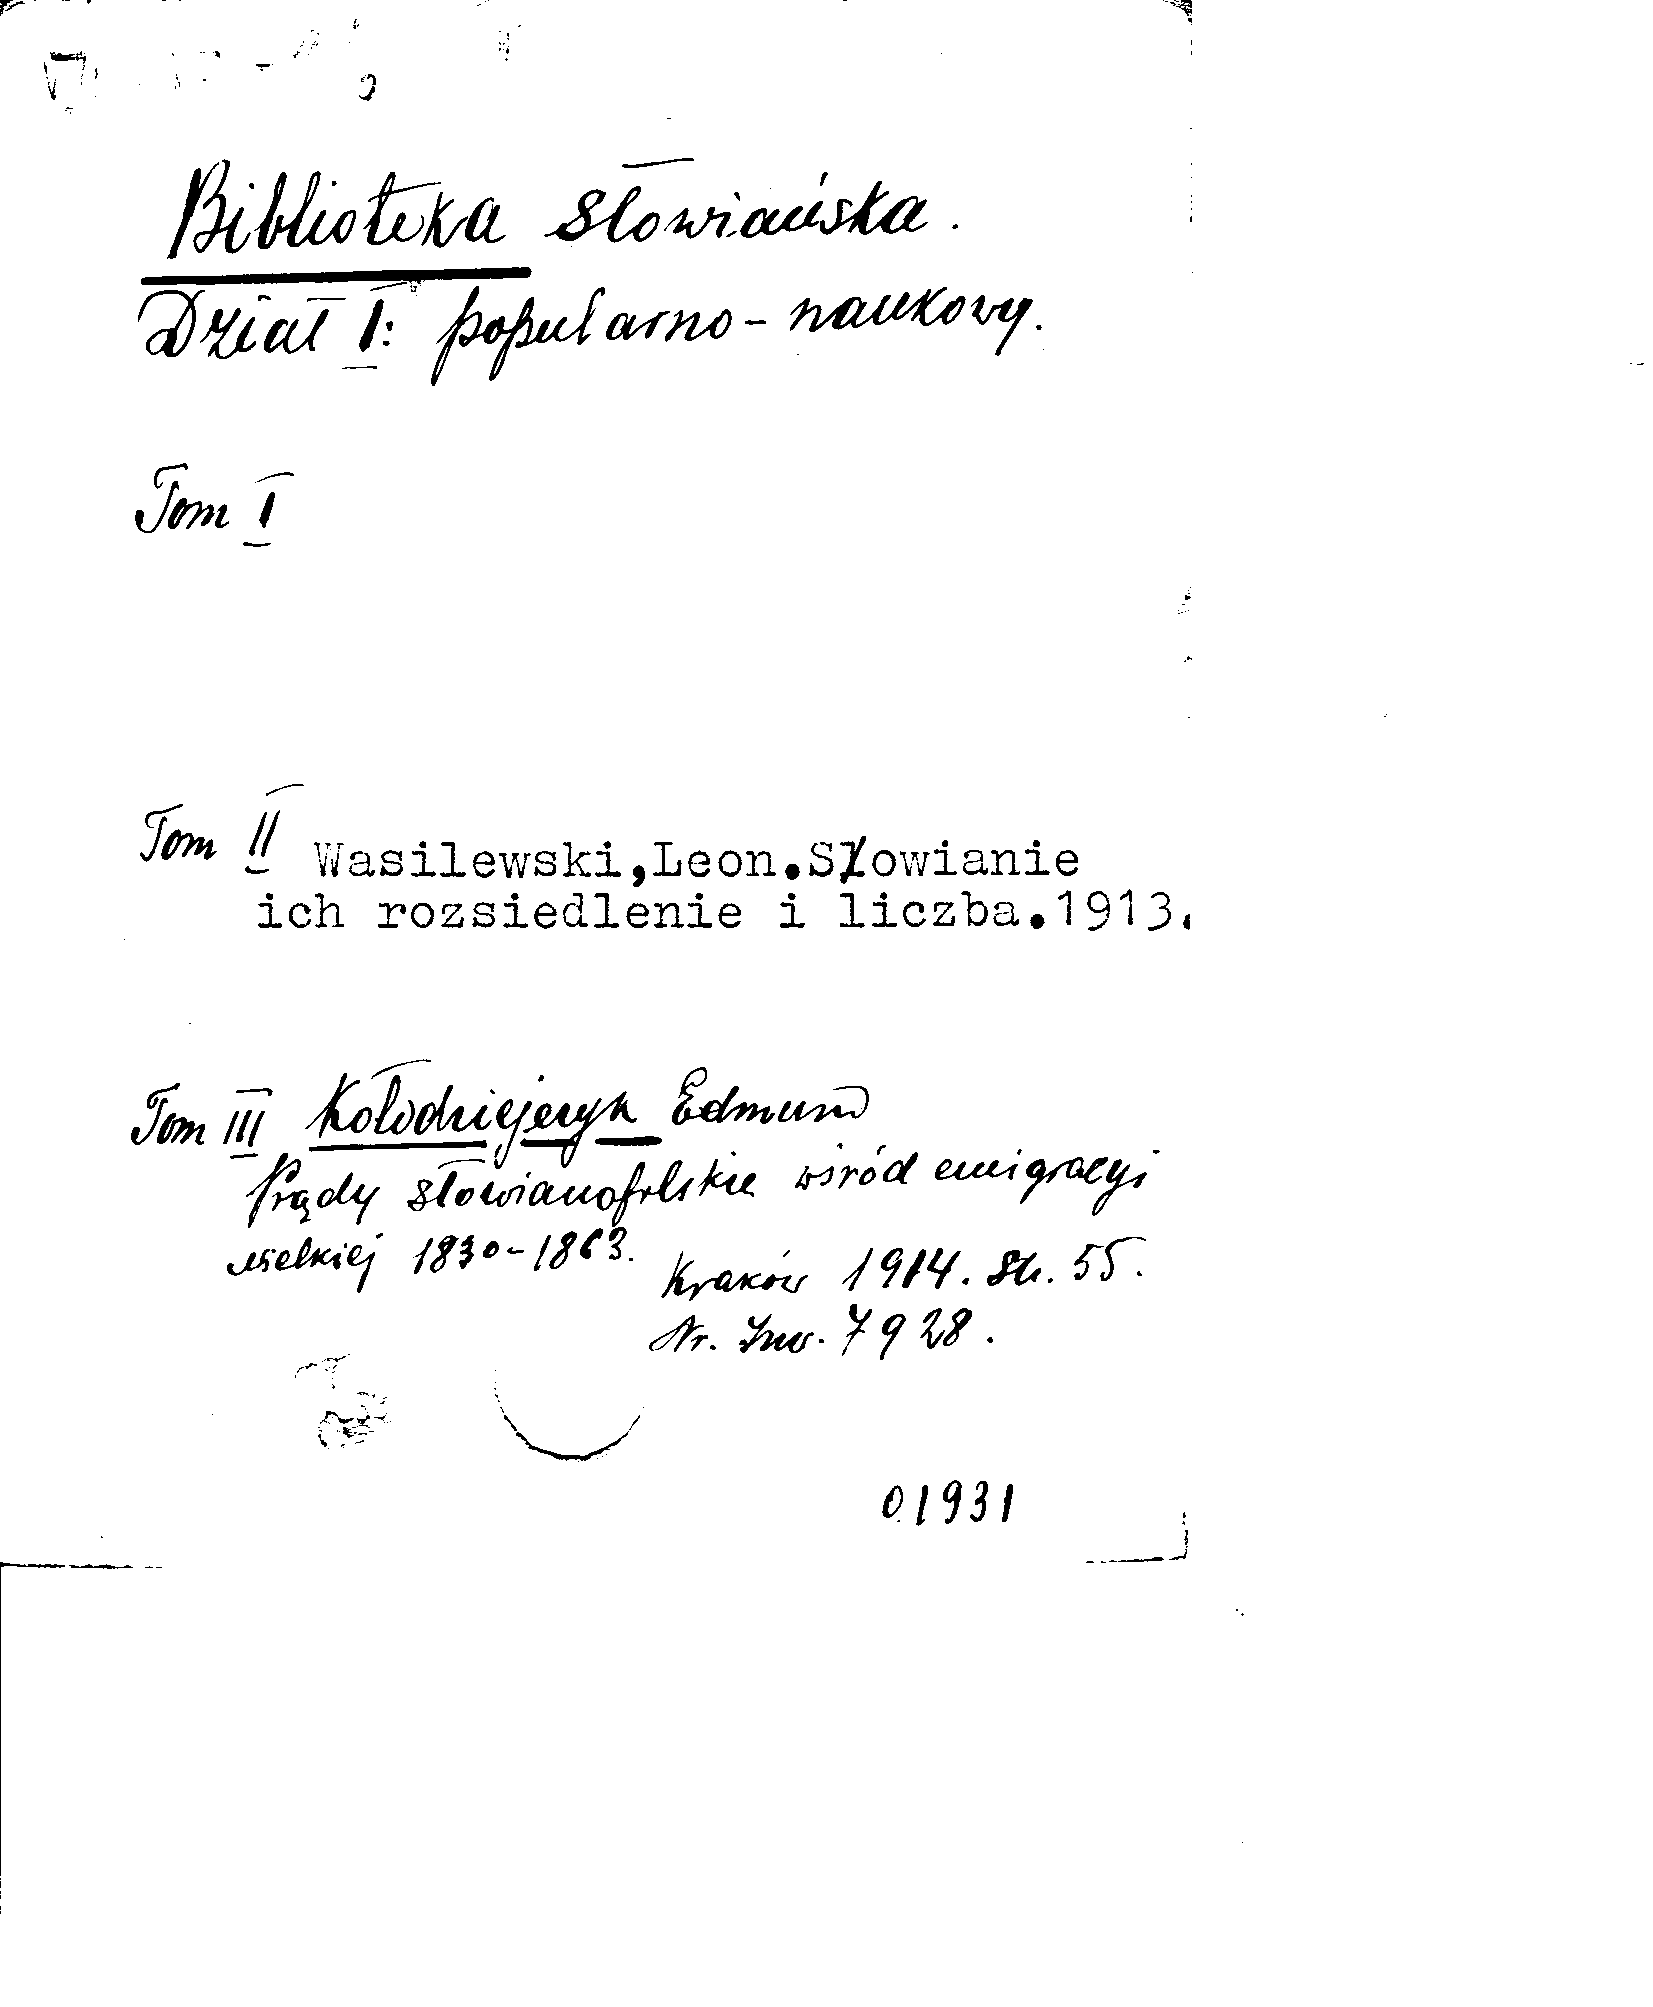 Biblioteka słowiańska.
Dział I: popularno-naukowy.
Tom I
Tom II Wasilewski,Leon.Słowianie
ich rozsiedlenie i liczba.1913.
Tom III Kołodziejczyk Edmund
Prądy słowianofilskie wśród emigracyi
wielkiej 1830-1863.
Kraków 1914. str. 55.
Nr. Inw. 7928.
01931